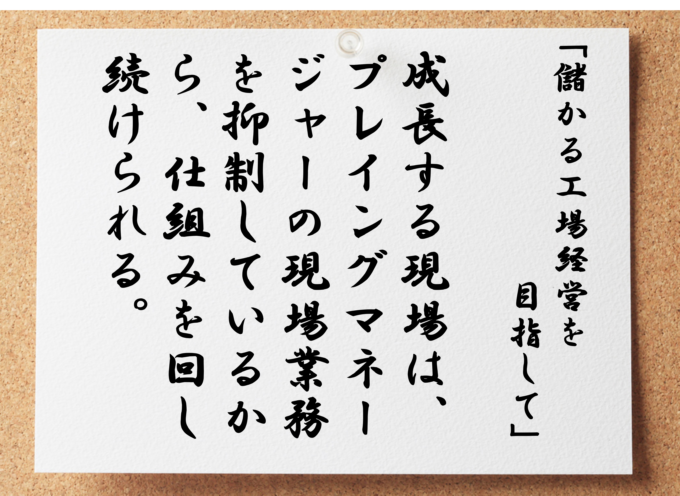 「儲かる工場経営を
目指して」
成長する現場は、
プレイングマネー
ジャーの現場業務
を抑制しているか
ら、仕組みを回し
続けられる。